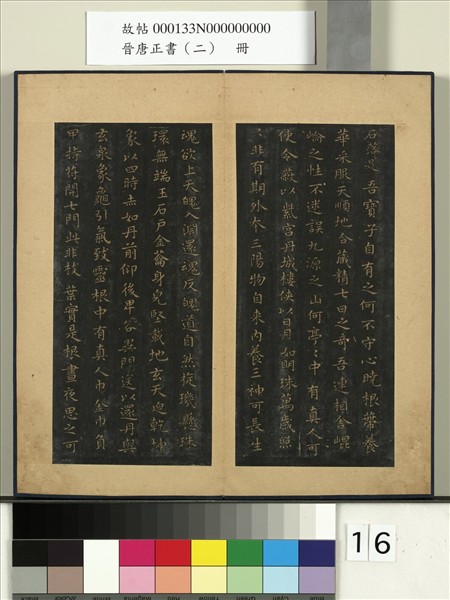 故帖 000133N000000000
晉唐正書（二） 冊
吾寶子自有之何不守心曉根蔕養
華采服天順地合藏精七日之奇吾連相舍崐
崘之性不迷誤九源之山何亭〻中有真人可
使令蔽以紫宮丹城樓俠以日月如明珠萬歲照
〻非有期外本三陽物自來內養三神可長生
魂欲上天魄入淵還魂反魄道自然旋璣懸珠
環無端玉石戶金籥身兒堅載地玄天迫乾坤
象以四時赤如丹前仰後卑各異門送以還丹與
玄泉象龜引氣致靈根中有真人巾金巾負
甲持符開七門此非枝葉實是根晝夜思之可
16